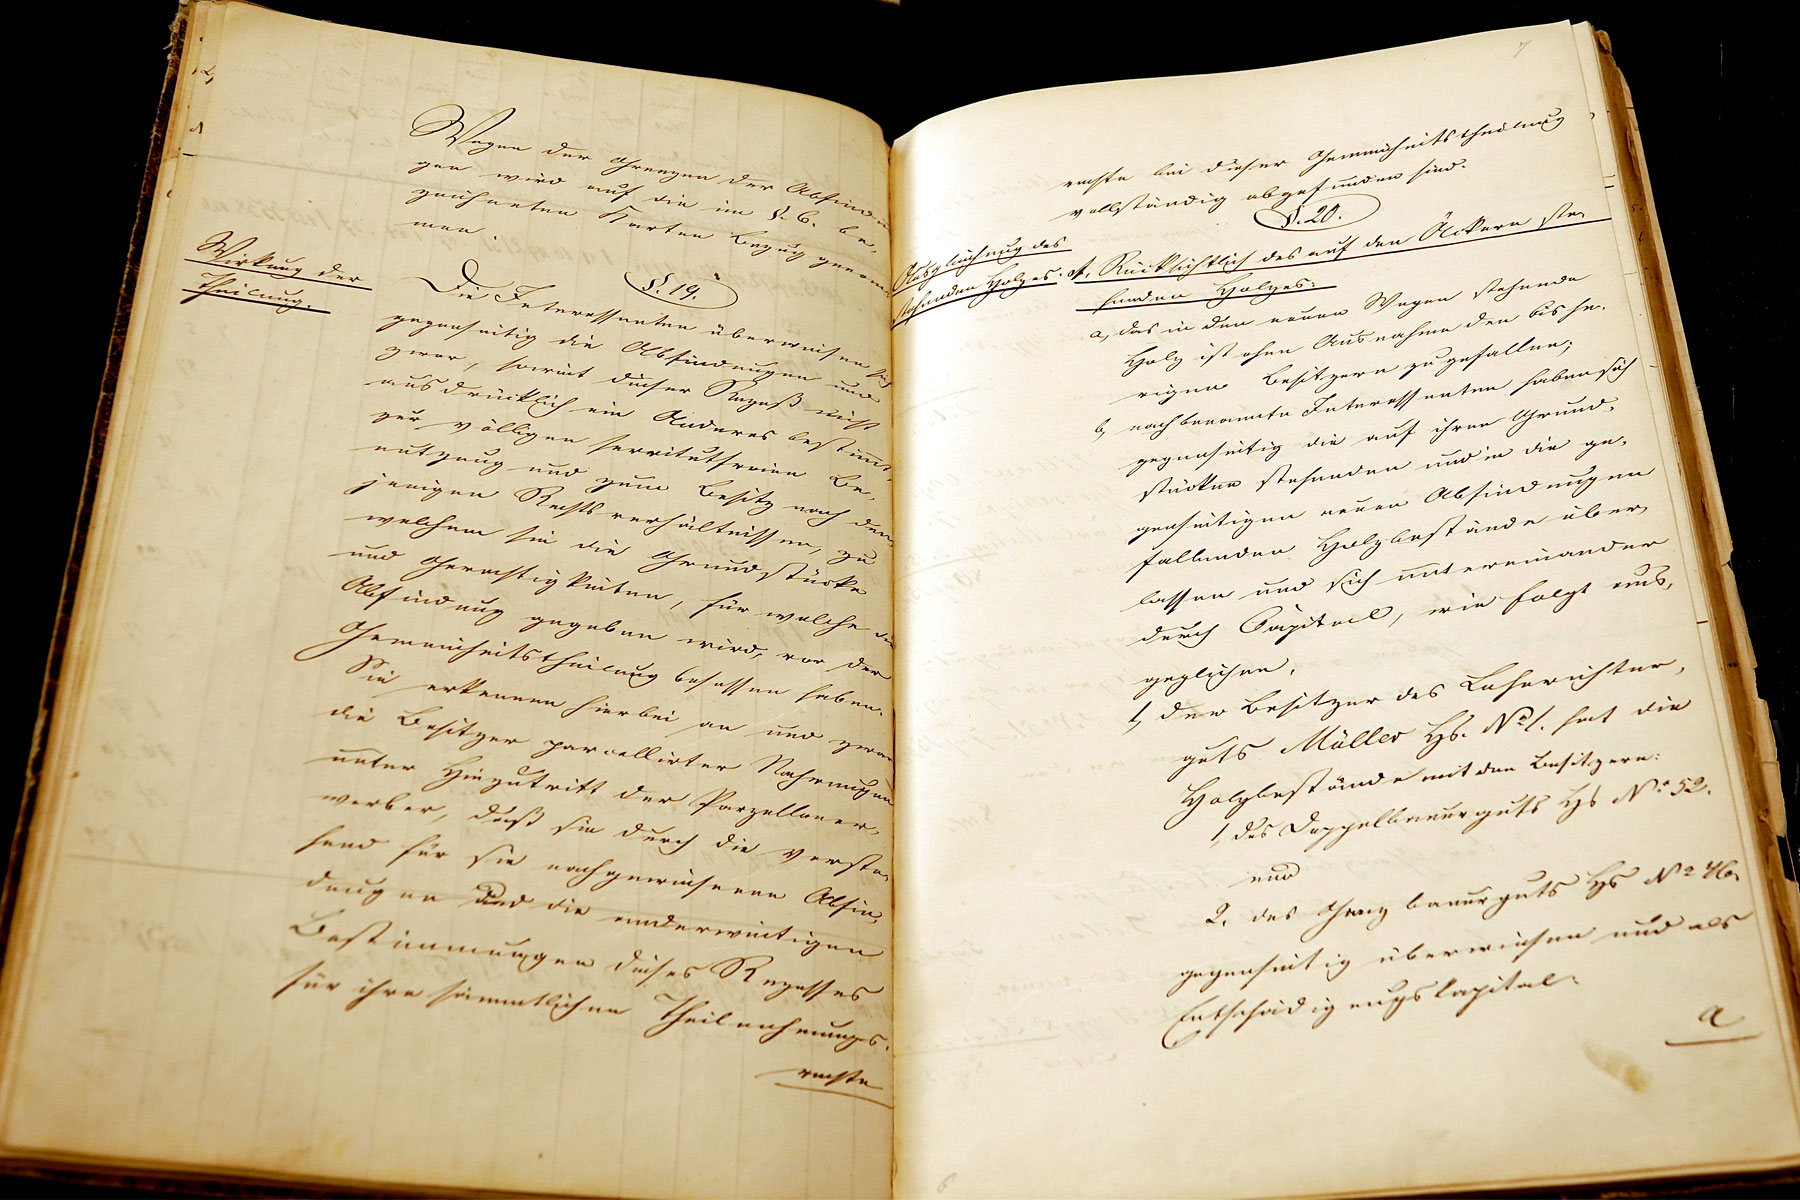 Wegen der Grenzen der Abfindun
gen wird auf die im §. 6. be-
zeichneten Karten Bezug genom-
men.
Wirkung der
Theilung.
§. 19.
Die Interessenten überweisen sich
gegenseitig die Abfindungen und
zwar, soweit dieser Rezeß nicht
ausdrücklich ein Anderes bestimmt,
zur völligen servitutfreien Be-
nutzung und zum Besitz nach den-
jenigen Rechtsverhältnissen, zu
welchem sie die Grundstücke
und Gerechtigkeiten, für welche die
Abfindung gegeben wird, vor der
Gemeinheitstheilung besessen haben.
Sie erkennen hierbei an und zwar
die Besitzer parcellirter Nahrungen
unter Hinzutritt der Parzellener-
werber, daß sie durch die verste-
hend für sie nachgewiesenen Abfin-
dungen und die anderweitigen
Bestimmungen dieses Rezesses
für ihre sämmtlichen Theilnehmungs-
rechte
7
rechte bei dieser Gemeinheitstheilung
vollständig abgefunden sind.
§. 20.
Ausgleichung des
stehenden Holzes.
A, Rücksichtlich des auf den Äckern ste-
henden Holzes:
a, das in den neuen Wegen stehende
Holz ist ohne Ausnahme den bishe-
rigen Besitzern zugefallen;
b, nachbenannte Interessenten haben sich
gegenseitig die auf ihren Grund-
stücken stehenden und in die ge-
genseitigen neuen Abfindungen
fallenden Holzbestände über-
lassen und sich untereinander
durch Capital, wie folgt aus-
geglichen.
1, der Besitzer des Lehnrichter-
guts Müller Hs. No 1. hat die
Holzbestände mit den Besitzern:
1, des Doppelbauerguts Hs No 52.
und
2. des Ganzbauerguts Hs No 46.
gegenseitig überwiesen und als
Entschädigungskapital:
a